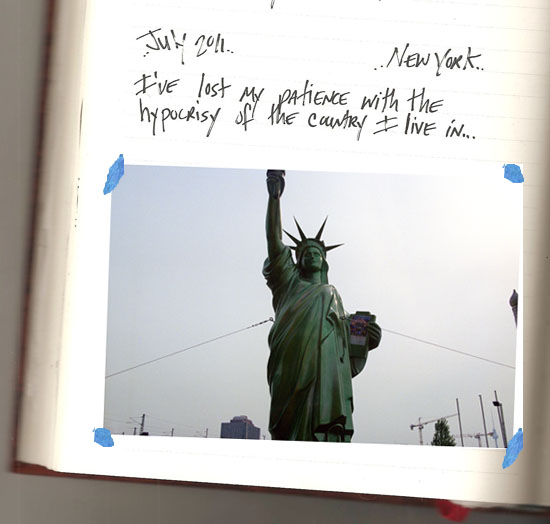 ..July 2011..
..New York..
I've lost my patience with the
hypocrisy of the country I live in...